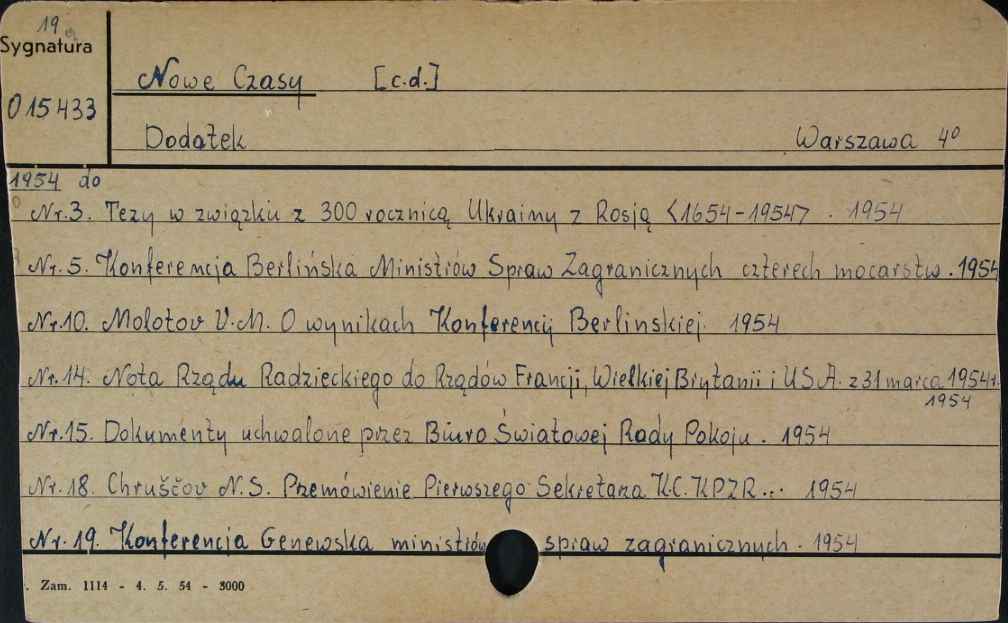 19
Sygnatura
015433
Nowe Czasy [c.d.]
Dodatek Warszawa 4º
1954 do
Nr. 3. Tezy w związku z 300 rocznicą Ukrainy z Rosją <1654-1954> . 1954
Nr. 5. Konferencja Berlińska Ministrów Spraw Zagranicznych czterech mocarstw . 1954
Nr. 10. Molotov V.M. O wynikach Konferencji Berlinskiej. 1954
Nr. 14. Nota Rządu Radzieckiego do Rządów Francji, Wielkiej Brytanii i U.S.A. z 31 marca 1954 r.
1954
Nr. 15. Dokumenty uchwalone przez Biuro Światowej Rady Pokoju . 1954
Nr. 18. Chruščov N.S. Przemówienie Pierwszego Sekretarza K.C. KPZR... 1954
Nr. 19. Konferencja Genewska ministrów spraw zagranicznych . 1954
Zam. 1114 - 4. 5. 54 - 3000